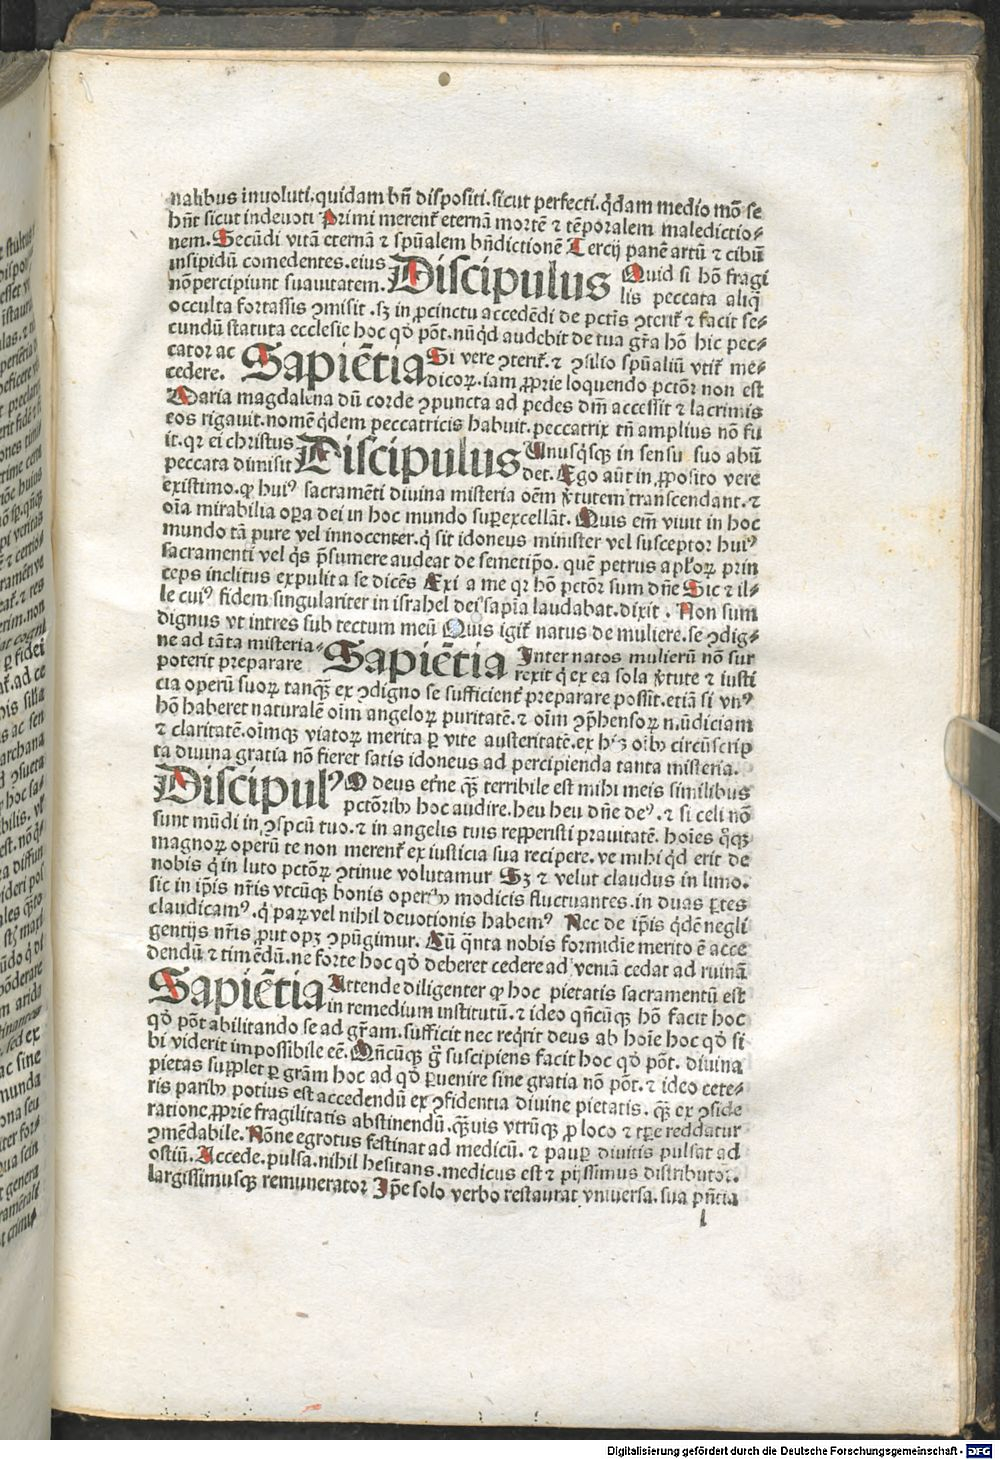 nalibus inuoluti.quidam bn̄ dispositi.sicut perfecti.q̇dam medio mō se
hn̄t sicut indeuoti Primi merent᷑ eternā mortē ⁊ tēporalem maledictio⸗
nem.Secūdi vitā eternā ⁊ spūalem bn̄dictionē Tercij panē artū ⁊ cibū
insipidū comedentes.eius Discipulus Quid si hō fragi
nō percipiunt suauitatem. lis peccata aliq̄
occulta fortassis ꝯmisit .sꝫ in ꝓcinctu accedēdi de pctīs ꝯterit᷑ ⁊ facit se⸗
cundū statuta ecclesie hoc qḋ pōt.nūqḋ audebit de tua gr̄a hō hic pec⸗
cator ac Sapiētia Si vere ꝯterit᷑.⁊ ꝯsilio spūaliū vtit᷑ me⸗
cedere. dicoꝝ.iam ꝓprie loquendo pctōr non est
Maria magdalena dū corde ꝯpuncta ad pedes dn̄i accessit ⁊ lacrimis
eos rigauit.nomē q̇dem peccatricis habuit.peccatrix tn̄ amplius nō fu
it.qr ei christus Discipulus Unusq̇sqꝫ in sensu suo abū
peccata dimisit det. Ego aūt in ꝓposito vere
existimo.ꝙ huiꝰ sacramēti diuina misteria oēm v̇tutem transcendant.⁊
oīa mirabilia oꝑa dei in hoc mundo suꝑexcellāt. Quis em̄ viuit in hoc
mundo tā pure vel innocenter.q̇ sit idoneus minister vel susceptor huiꝰ
sacramenti vel q̇s p̄sumere audeat de semetip̄o. quē petrus apl̄oꝝ prin
ceps inclitus expulit a se dicēs Exi a me qr hō pctōr sum dn̄e Sic ⁊ il⸗
le cuiꝰ fidem singulariter in israhel dei sapīa laudabat.dixit . Non sum
dignus vt intres sub tectum meū Quis igit᷑ natus de muliere.se ꝯdig⸗
ne ad tāta misteria⸗ Sapiētia Inter natos mulierū nō sur
poterit preparare rexit q̇ ex ea sola v̇tute ⁊ iusti
cia operū suoꝝ tanqꝫ̄ ex ꝯdigno se sufficient᷑ preparare possit.etiā si vnꝰ
hō haberet naturalē oīm angeloꝝ puritatē.⁊ oīm ꝯp̄hensoꝝ mūdiciam
⁊ claritatē.oīmqꝫ viatoꝝ merita ꝑ vite austeritatē.ex hijs oībꝫ circūscrip
ta diuina gratia nō fieret satis idoneus ad percipienda tanta misteria.
Discipulꝰ O deus etn̄e qꝫ̄ terribile est mihi meis similibus
pctōribꝫ hoc audire.heu heu dn̄e deꝰ.⁊ si celi nō
sunt mūdi in ꝯspcū tuo.⁊ in angelis tuis repꝑisti prauitatē. hoīes q̇qꝫ
magnoꝝ operū te non merent᷑ ex iusticia sua recipere.ve mihi qḋ erit de
nobis q̇ in luto pctōꝝ ꝯtinue volutamur Sꝫ ⁊ velut claudus in limo.
sic in ip̄is nr̄is vtcūqꝫ bonis operibꝫ modicis fluctuantes.in duas ꝑtes
claudicamꝰ.q̇ parū vel nihil deuotionis habemꝰ Nec de ip̄is q̇dē negli
gentijs nr̄is ꝓut opꝫ ꝯpūgimur. Eū q̄nta nobis formidīe merito ē acce
dendū ⁊ timēdū.ne forte hoc qḋ deberet cedere ad veniā cedat ad ruinā
Sapiētia Attende diligenter ꝙ hoc pietatis sacramentū est
in remedium institutū.⁊ ideo qn̄cūqꝫ hō facit hoc
qḋ pōt abilitando se ad gr̄am.sufficit nec req̇rit deus ab hoīe hoc qḋ si
bi viderit impossibile eē. Qn̄cūqꝫ g̊ suscipiens facit hoc qḋ pōt. diuina
pietas supplet ꝑ gr̄am hoc ad qḋ ꝑuenire sine gratia nō pōt.⁊ ideo cete⸗
ris paribꝫ potius est accedendū ex ꝯfidentia diuine pietatis. qꝫ̄ ex ꝯside
ratione ꝓprie fragilitatis abstinendū.qꝫ̄uis vtrūqꝫ ꝓ loco ⁊ tꝑe reddatur
ꝯmēdabile. Nōne egrotus festinat ad medicū. ⁊ pauꝑ diuitis pulsat ad
ostiū. Accede.pulsa.nihil hesitans.medicus est ⁊ pijssimus distributor.
largissimusqꝫ remunerator Ip̄e solo verbo restaurat vniuersa.sua pn̄tia
l
Digitalisierung gefördert durch die Deutsche Forschungsgemeinschaft - DFG